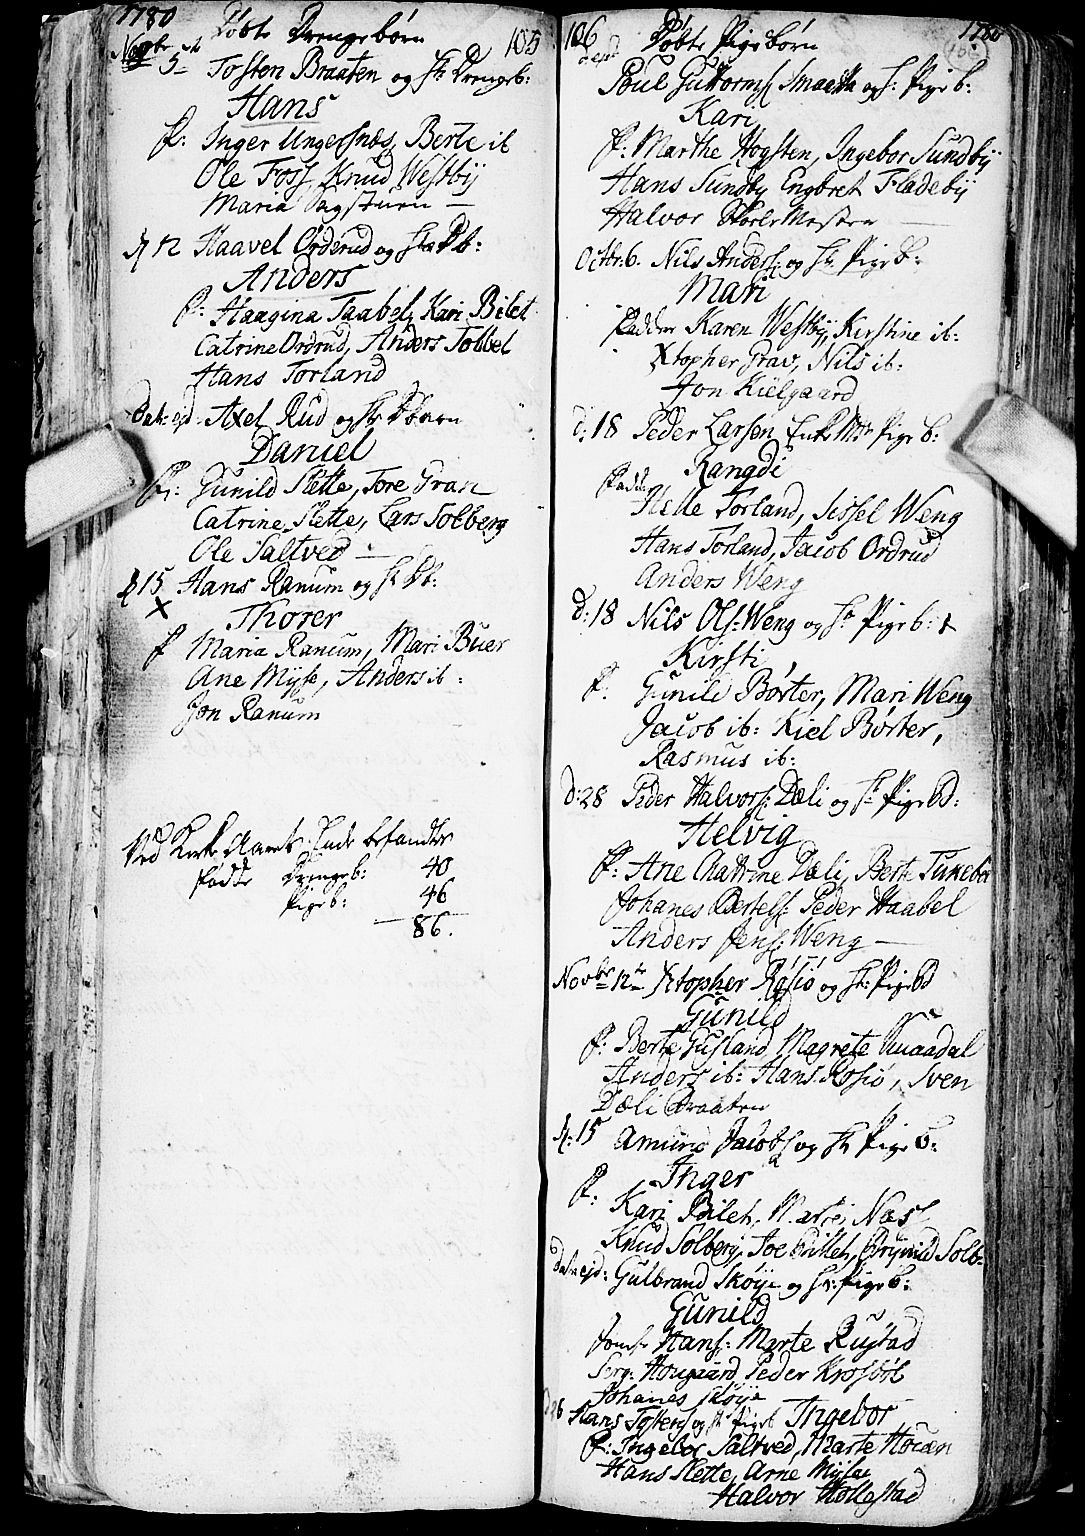 1780 Døbte Drengebørn 105
Novbr 5te Tosten Braaten og H: Drengeb:
Hans
F: Inger Ungersnæs, Berte ib
Ole Foss, Knud Westby
Maria Sagstuen —
d 12 Haavel Orderud og H: D b:
Anders
F: Haagina Taabel, Kari Bilet
Catrine Ordrud, Anders Tobbel
Hans Torland
Dat: ejd. Axel Rud og H: D børn
Daniel
F: Gunild Slette, Tore Gran
Catrine Slette, Lars Solberg
Ole Saltved —
d 15 Hans Ranum og H: D b:
X Thorer
F Maria Ranum, Mari Buer
Ane Myse, Anders ib:
Jon Ranum
Ved Kirke Aarets Ende befandtes
fødte Drengeb: 40
Pigeb: 46
86.
106 Døbte Pigebørn 1780
Poul Guttorms Smaestu og H: Pigeb:
Kari
F: Marthe Hogsten, Ingebor Sundby
Hans Sundby Engbret Fladeby
Halvor Skoele Mester
Octbr. 6. Nils Anders: og H: Pigeb:
Mari
Fadder Karen Westby, Kirstine ib:
Xtopher Grav, Nils ib:
Jon Kielgaard
d: 18 Peder Larsen Pigeb:
Rangdi
Fadder
Helle Torland, Sissel Weng
Hans Torland, Jacob Ordrud
Anders Weng
d: 18 Nils Ols: Weng og H: Pigeb: X
Kirsti
F: Gunild Børter, Mari Weng
Jacob ib: Kiel Børter,
Rasmus ib:
d: 28 Peder Halvors: Dæli og H: Pige Bd:
Helvig
F: Ane Chatrine Dæli, Berte Tukebor
Johanes Bertels: Peder Haabel
Anders Jens: Weng —
Novbr 12te Xtopher Røsiø og H: Pige Bd
Gunild
F: Berte Gusland Magrete Knaadal
Anders ib: Hans Røsiø, Sven
Dæli Braaten
d: 15 Amund Jacobs og H: Pigeb:
Inger
F:
Kari Bilet, Marte Næs
Knud Solberg, Joe Billet, Brynild Solb:
Dato ejd: Gulbrand Skøije og H: Pigeb:
Gunild
Jomfr Hans: Marte Rustad
Serg: Hougaard Peder Krosbøl
Johanes Skøije
d 26 Hans Tosberg og H: Pigeb Ingebor
F: Ingebor Saltved, Marte Houen
Hans Slette, Arne Myse
Halvor Hollestad